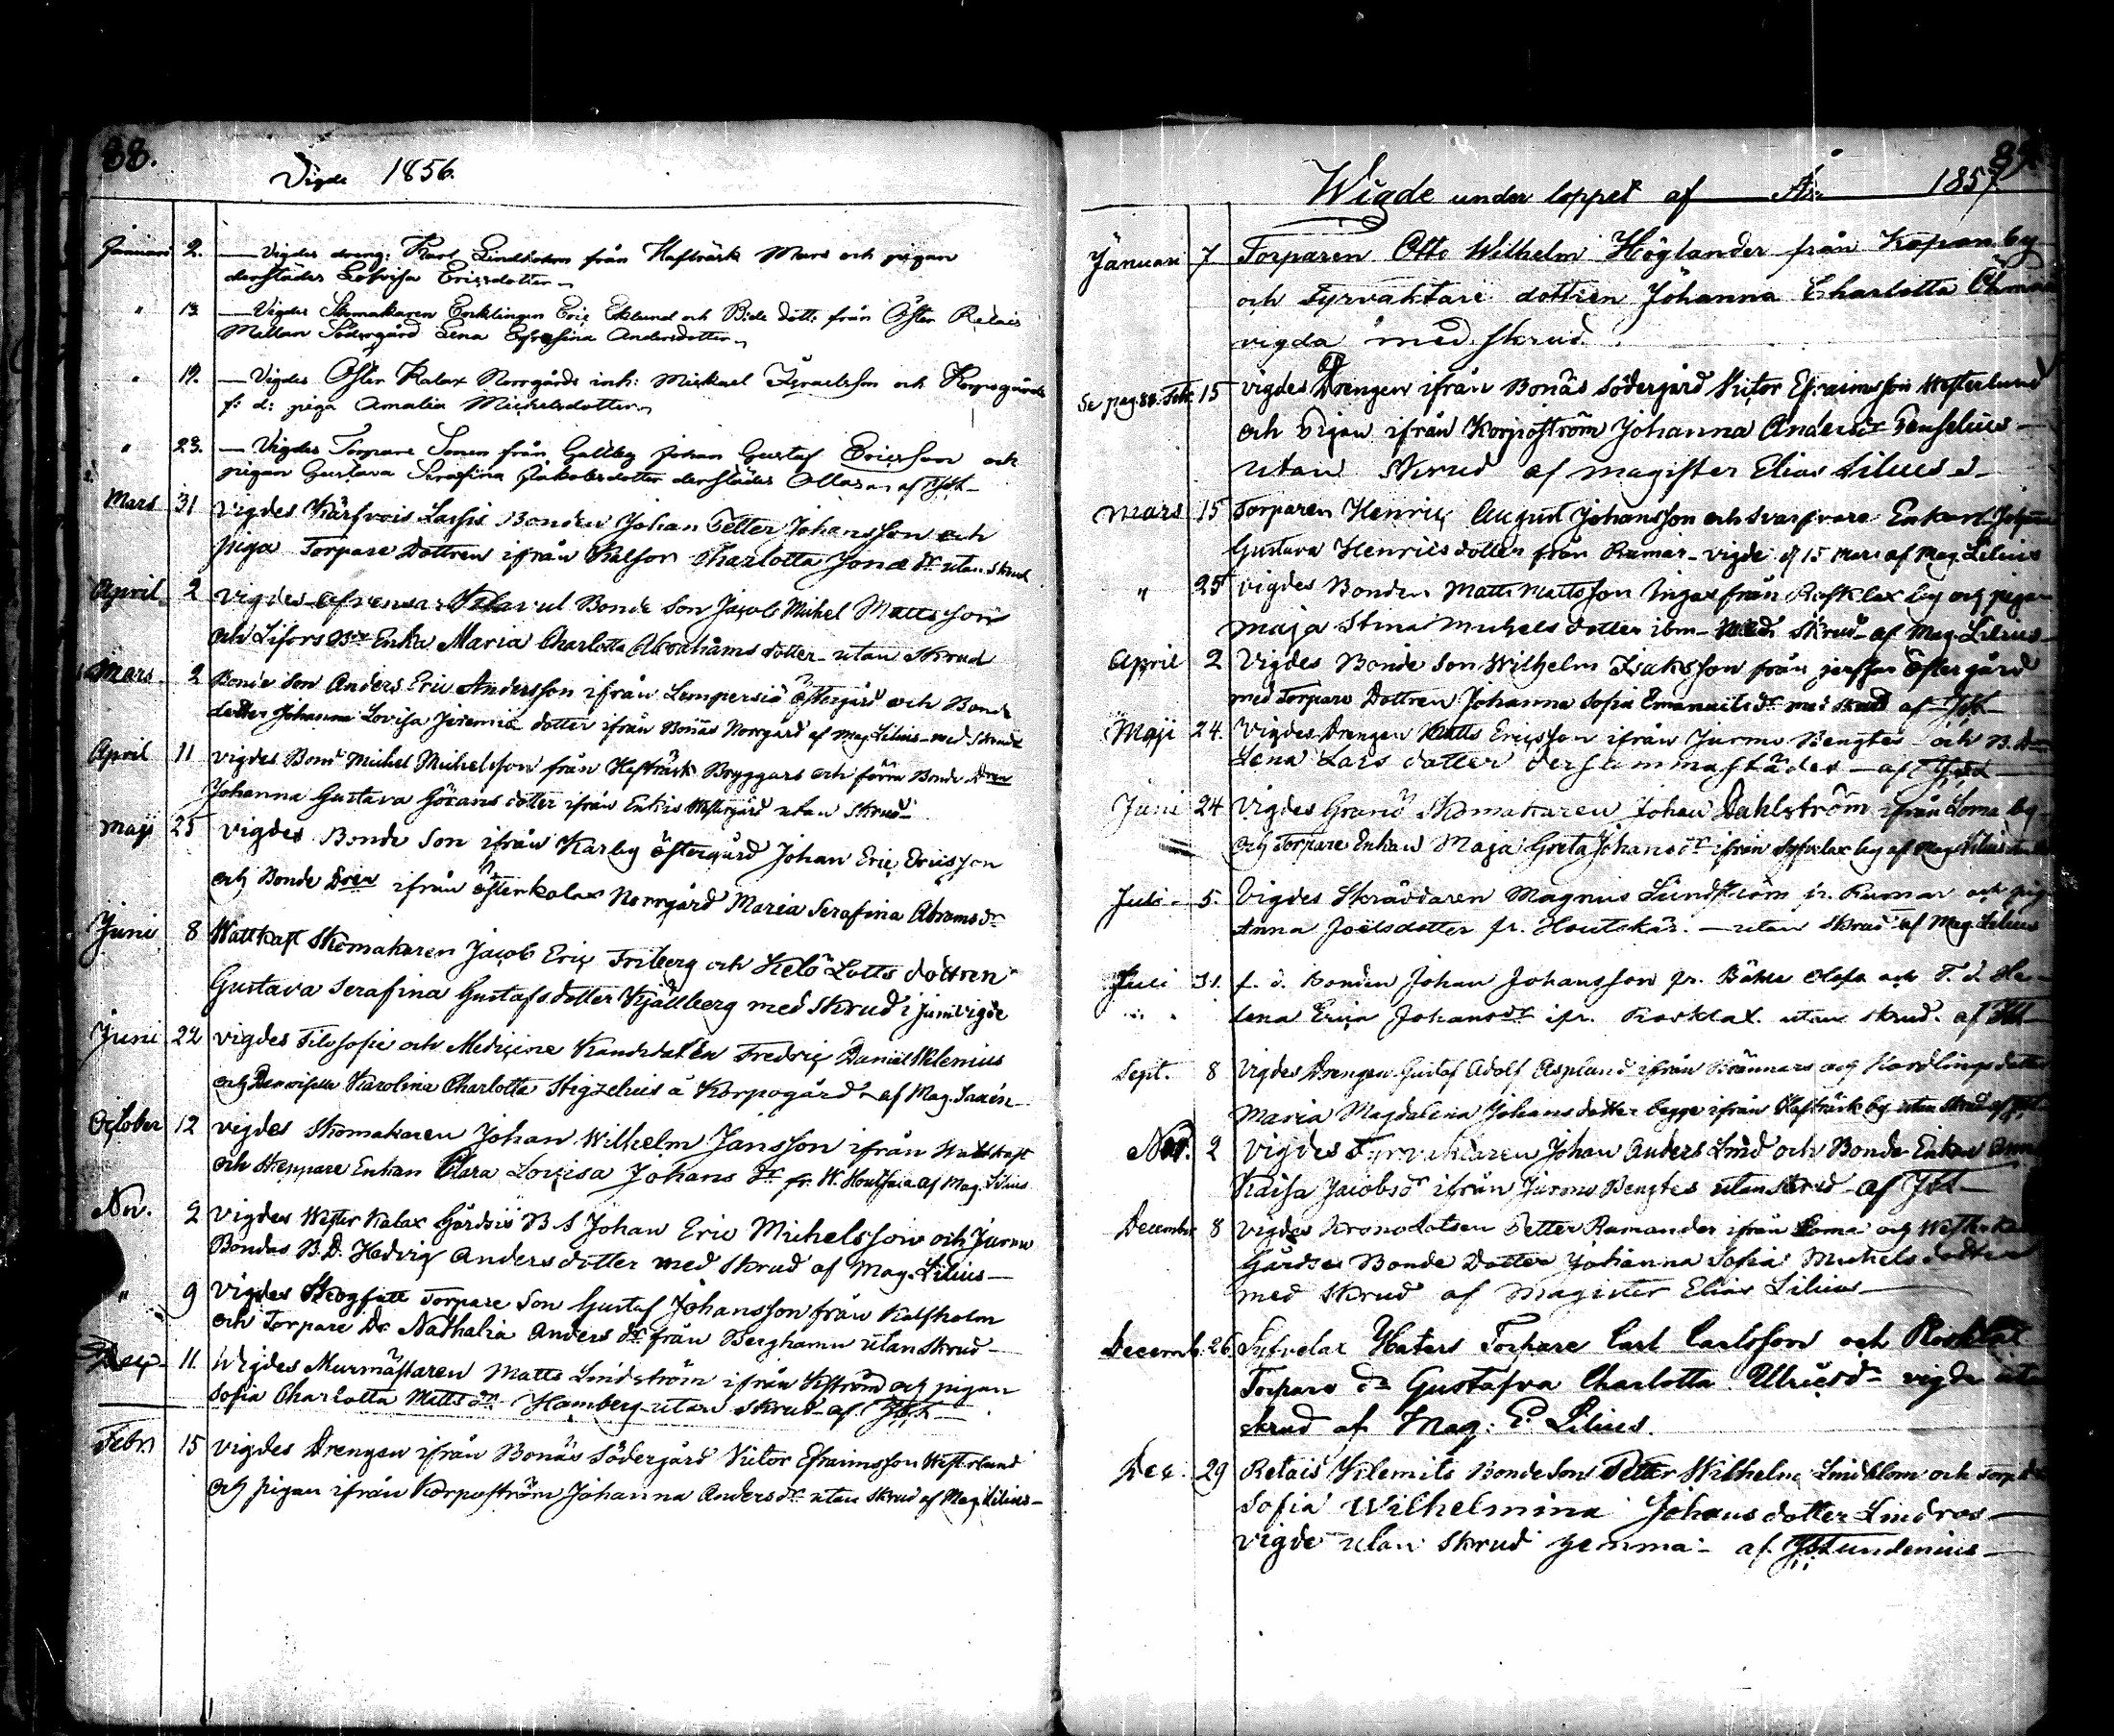 88.
Vigde 1856.
Januari 2. — Vigdes dreng: Karl Lindholm från Hafträsk Mars och pigan
derstädes Lovisa Ericsdotter
" 13. — Vigdes Skomakaren Enklingen Eric Eklund och B:de dott: från Öster Retais
Mellan Södergård Lena Eufrosina Andersdotter
" 19. — Vigdes Öster Kalax Norrgårds inh: Mickael Israelsson och Korpogårds
f: d: piga Amalia Michelsdotter
" 23. — Vigdes Torpare Sonen från Galtby Johan Gustaf Ericsson och
pigan Gustava Serafina Jakobsdotter derstädes af
Mars 31 Vigdes Kärfvois Lassis Bonden Johan Petter Johansson och
piga Torpare Dottren ifrån Kalfor Charlotta Jonæ Dr utan Skrud
April 2 Vigdes Klavul Bonde Son Jacob Michel Mattsson
och Lifors Enka Maria Charlotta Abrahams dotter utan Skrud
Mars 2 Bonde Son Anders Eric Andersson ifrån Lempersiö Östergård och Bonde
dotter Johanna Lovisa Jeremiæ dotter ifrån Bonäs Norrgård af Mag. Lilius med Skrud
April 11 Vigdes Bond Michel Michelsson från Hafträsk Bryggars och förra Bonde Dren
Johanna Gustava Görans dotter ifrån Enkis Westergård utan Skrud
Maji 25 Vigdes Bonde Son ifrån Karby Östergård Johan Eric Ericsson
och Bonde Dren ifrån Österkalax Norrgård Maria Serafina Abrams dr
Juni 8 Wattkast Skomakaren Jacob Eric Friberg och Kelö Lotts dottren
Gustava Serafina Gustafs dotter Kjällberg med Skrud i Juni vigde
Juni 22 Vigdes Filosofie och Medicine Kandidaten Fredric Daniel Wilenius
och Demoiselle Karolina Charlotta Stigzelius å Korpogård af Mag. Saxén
October 12 vigdes Skomakaren Johan Wilhelm Jansson ifrån Wattkast
och Skeppare Enkan Clara Lovisa Johans Dr fr. af Mag. Lilius
Nov. 2 Vigdes Wester Kalax Gårdsis B S Johan Eric Michelsson och Jurmo
Bondas B.D. Hedvig Anders dotter med Skrud af Mag. Lilius
" 9 Vigdes Skogfatt Torpare Son Gustaf Johansson från Kalfholm
och Torpare Dr Nathalia Anders dr från Berghamn utan Skrud
Dec. 11. Wigdes Murmästaren Matts Lindström ifrån Kström och pigan
Sofia Charlotta Matts dr Hamberg utan Skrud af
Febr. 15 Vigdes Drengen ifrån Bonäs Södergård Victor Efraimsson Westerlund
och pigan ifrån Korpoström Johanna Anders dr utan Skrud af Mag Lilius
89.
Wigde under loppet af År 1857
Januari 7 Torparen Otto Wilhelm Höglander från Korpo by
och Fyrvaktare dottren Johanna Charlotta Öhman
vigda med Skrud.
Se pag. 88. Feb. 15 vigdes Drengen ifrån Bonäs Södergård Victor Efraimsson Westerlund
och Pigan ifrån Korpoström Johanna Anders dr Penselius
utan Skrud af magister Elias Lilius
Mars 15 Torparen Henric August Johansson och Enkan Johanna
Gustava Henrics dotter från Rumar vigde d 15 Mars af Mag. Lilius
" 25 Vigdes Bonden Matts Mattsson Ingas från Rosklax by och pigan
Maja Stina Michels dotter ibm Med Skrud af Mag. Lilius
April 2 Vigdes Bonde Son Wilhelm Isaksson från Östergård
med Torpare Dottren Johanna Sofia Emanuels dr med Skrud af
Maji 24. Vigdes Drengen Matts Ericsson ifrån Jurmo Bengtes och B.D
Lena Lars dotter dersammastädes af
Juni 24 Vigdes Skomakaren Johan Dahlström ifrån by
och Torpare Enkan Maja Greta Johans dr ifrån Syfvelax by af Mag Lilius
Juli 5. Vigdes Skräddaren Magnus Lundström fr. Rumar och pig
Anna Joëlsdotter fr. Houtskär. utan Skrud af Mag. Lilius
Juli 31. f. d. Bonden Johan Johansson fr. Olofs och T. d. He
lena Erica Johans dr ifr. Rosklax utan Skrud. af
Sept. 8 Vigdes Drengen Gustaf Adolf Asplund ifrån Brännars och Kordlings dotter
Maria Magdalena Johans dotter begge ifrån Hafträsk by utan Skrud af
Nov. 2 Vigdes Fyrvaktaren Johan Anders Lind och Bonde Enkan Anna
Kaisa Jacobs dr ifrån Jurmo Bengtes utan Skrud af
December 8 Vigdes Kronolotsen Petter Ramander ifrån Loma och
Gårdses Bonde Dotter Johanna Sofia Michels dotter
med Skrud af Magister Elias Lilius
Decemb. 26. Syfvelax Haters Torpare Carl Carlsson och Rosklax
Torpare dr Gustafva Charlotta Ulricsdr vigde utan
skrud af Mag: E. Lilius.
Dec. 29 Retais Klemits Bonde Son Petter Wilhelm Lindblom och Torp
Sofia Wilhelmina Johansdotter Lindros
vigde utan Skrud hemma af